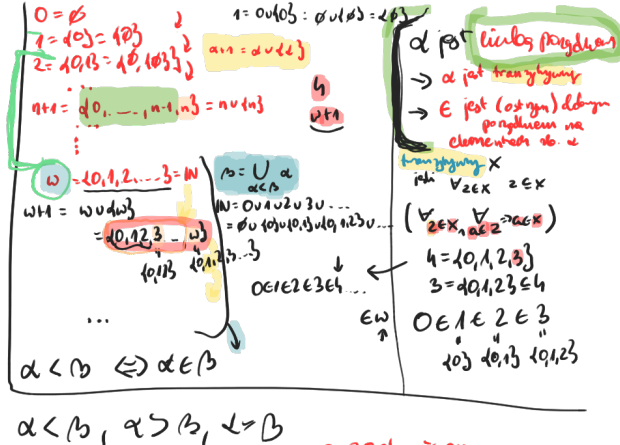 0 = ∅
1 = {0} = {∅}
2 = {0,1} = {∅, {∅}}
n+1 = {0, ..., n-1, n} = n ∪ {n}
ω = {0,1,2....} = ℕ
ω+1 = ω ∪ {ω}
= {0,1,2,3 ... ω}
{0,1,2} {0,1,2,3...}
...
α < β ⇔ α ∈ β
α < β, α > β, α = β
1 = 0 ∪ {0} = ∅ ∪ {∅} = {∅}
α+1 = α ∪ {α}
4
ω+1
β = ⋃ α
α<β
ℕ = 0 ∪ 1 ∪ 2 ∪ 3 ∪ ...
= ∅ ∪ {0} ∪ {0,1} ∪ {0,1,2} ∪ ...
0 ∈ 1 ∈ 2 ∈ 3 ∈ 4 ....
∈ ω
α jest liczbą porządkową
→ α jest tranzytywny
→ ∈ jest (ostrym) dobrym
porządkiem na
elementach zb. α
tranzytywny x
jeśli ∀ z∈x z ⊆ x
(∀ z∈x, ∀ a∈z ⇒ a∈x)
4 = {0,1,2,3}
3 = {0,1,2} ⊆ 4
0 ∈ 1 ∈ 2 ∈ 3
{0} {0,1} {0,1,2}